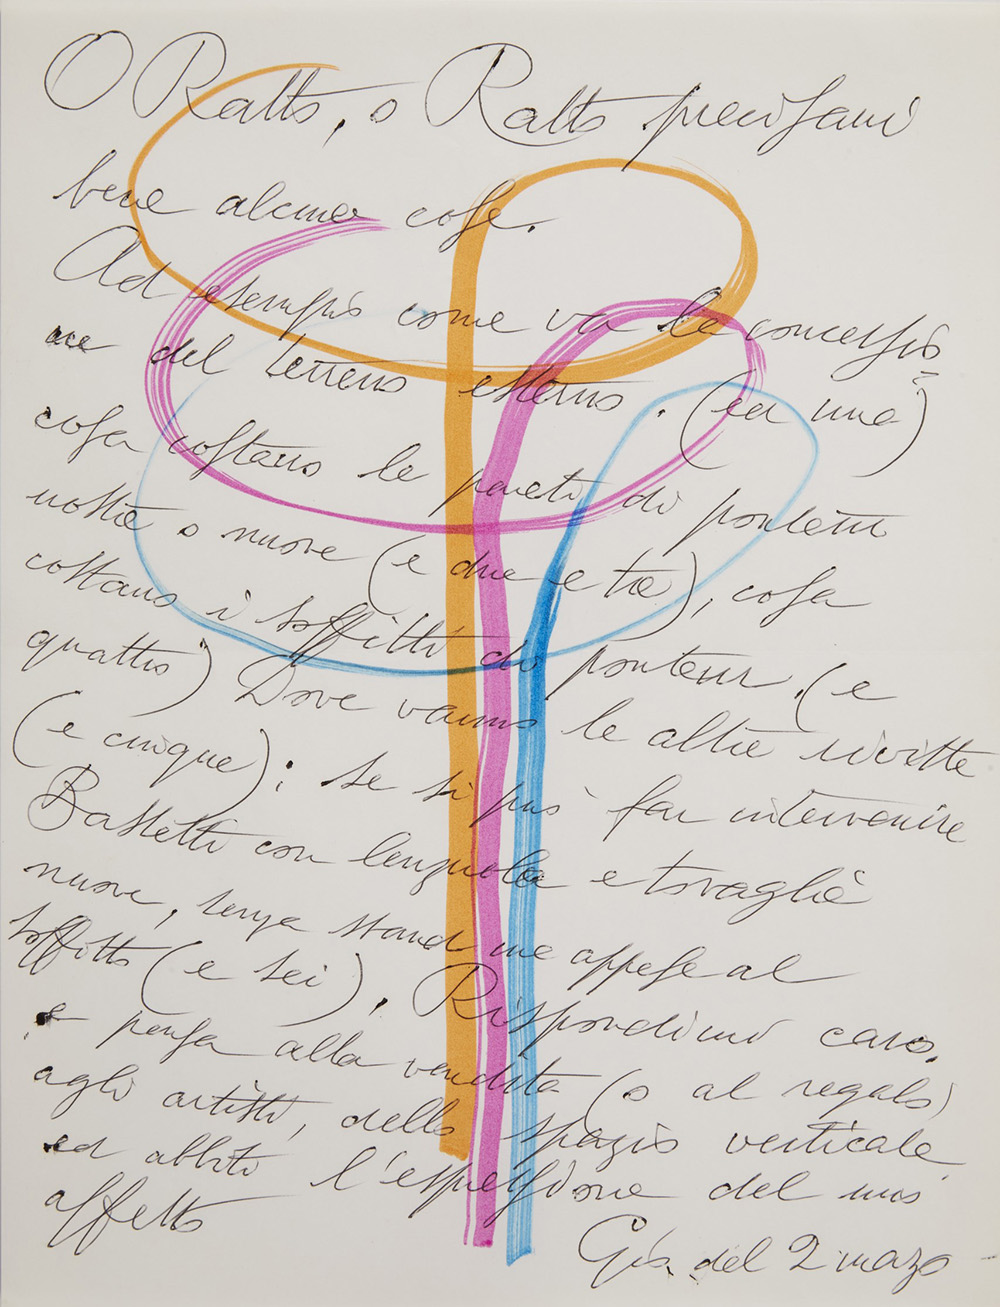 O Ratto, o Ratto precisami
bene alcune cose.
Ad esempio come va la concessio
ne del terreno esterno. (e una)
cosa costano le pareti di
nostre o nuove (e due e tre), cosa
costano i soffitti di (e
quattro) Dove vanno le altre
(e cinque); se si può far intervenire
Bassetti con lenzuola e tovaglie
nuove, senza stand ma appese al
soffitto (e sei). Rispondimi caro,
e pensa alla vendita (o al regalo)
agli artisti, dello spazio verticale
ed abbiti l'espressione del mio
affetto
Gio. del 2 marzo